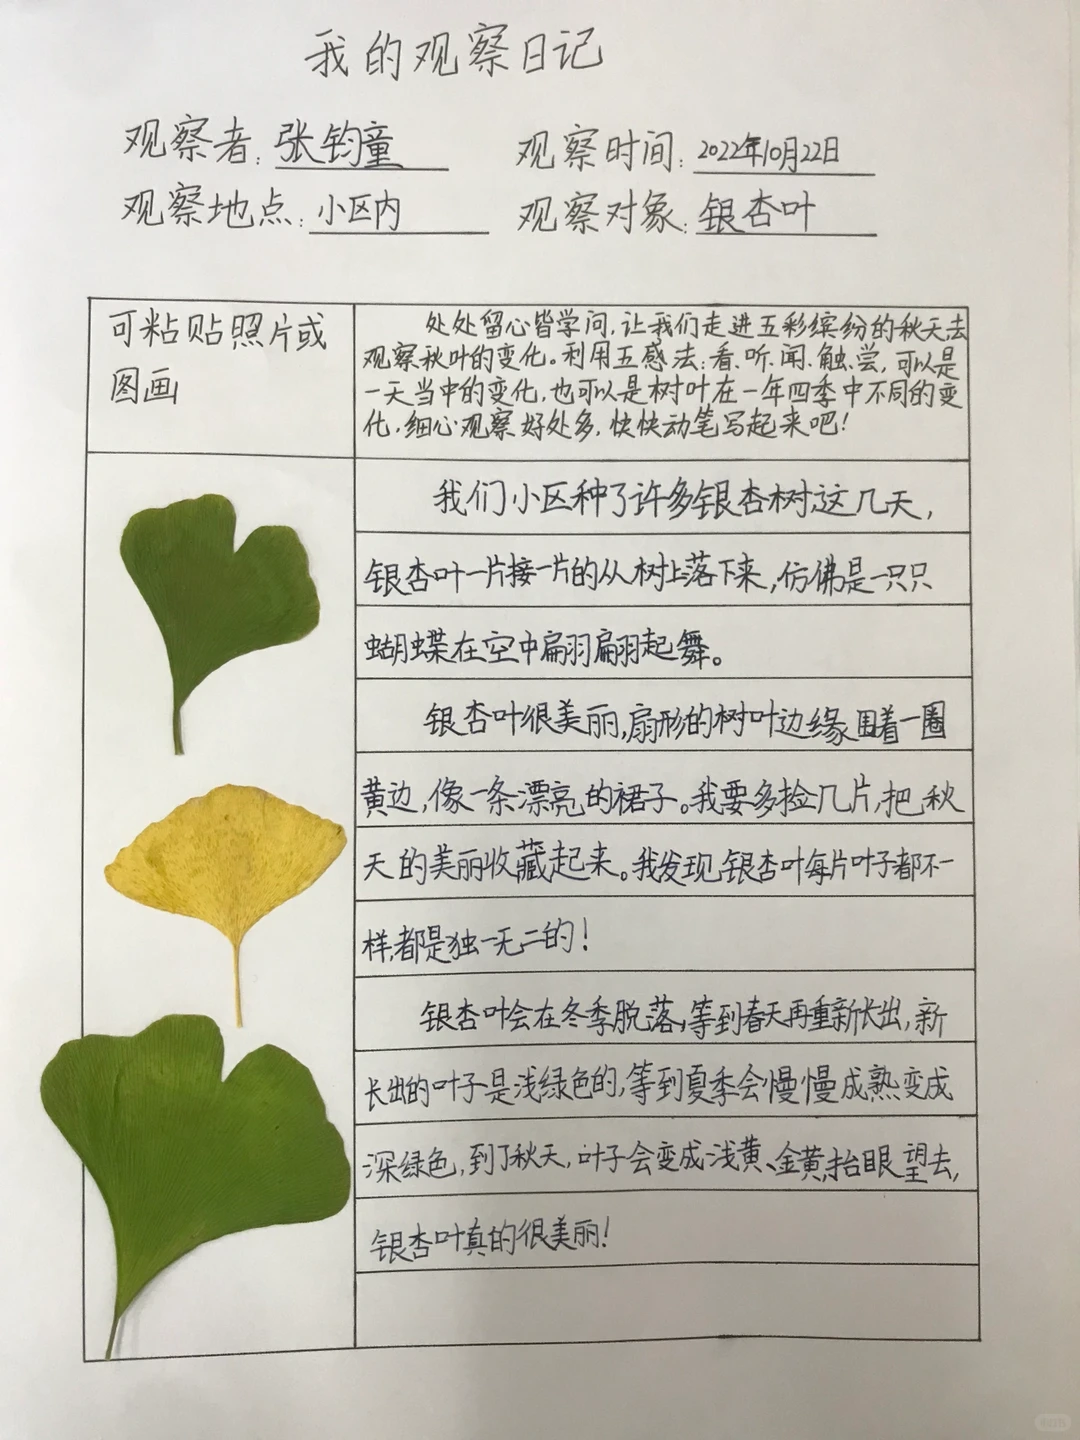 我的观察日记
观察者:张钧童 观察时间:2022年10月22日
观察地点:小区内 观察对象:银杏叶
可粘贴照片或
图画
处处留心皆学问,让我们走进五彩缤纷的秋天,去
观察秋叶的变化。利用五感法:看、听、闻、触、尝,可以是
一天当中的变化,也可以是树叶在一年四季中不同的变
化,细心观察好处多,快快动笔写起来吧!
我们小区种了许多银杏树,这几天,
银杏叶一片接一片的从树上落下来,仿佛是一只只
蝴蝶在空中扁羽扁羽起舞。
银杏叶很美丽,扇形的树叶边缘围着一圈
黄边,像一条漂亮的裙子。我要多捡几片,把秋
天的美丽收藏起来。我发现,银杏叶每片叶子都不一
样,都是独一无二的!
银杏叶会在冬季脱落,等到春天再重新长出,新
长出的叶子是浅绿色的,等到夏季会慢慢成熟变成
深绿色,到了秋天,叶子会变成浅黄、金黄,抬眼望去,
银杏叶真的很美丽!